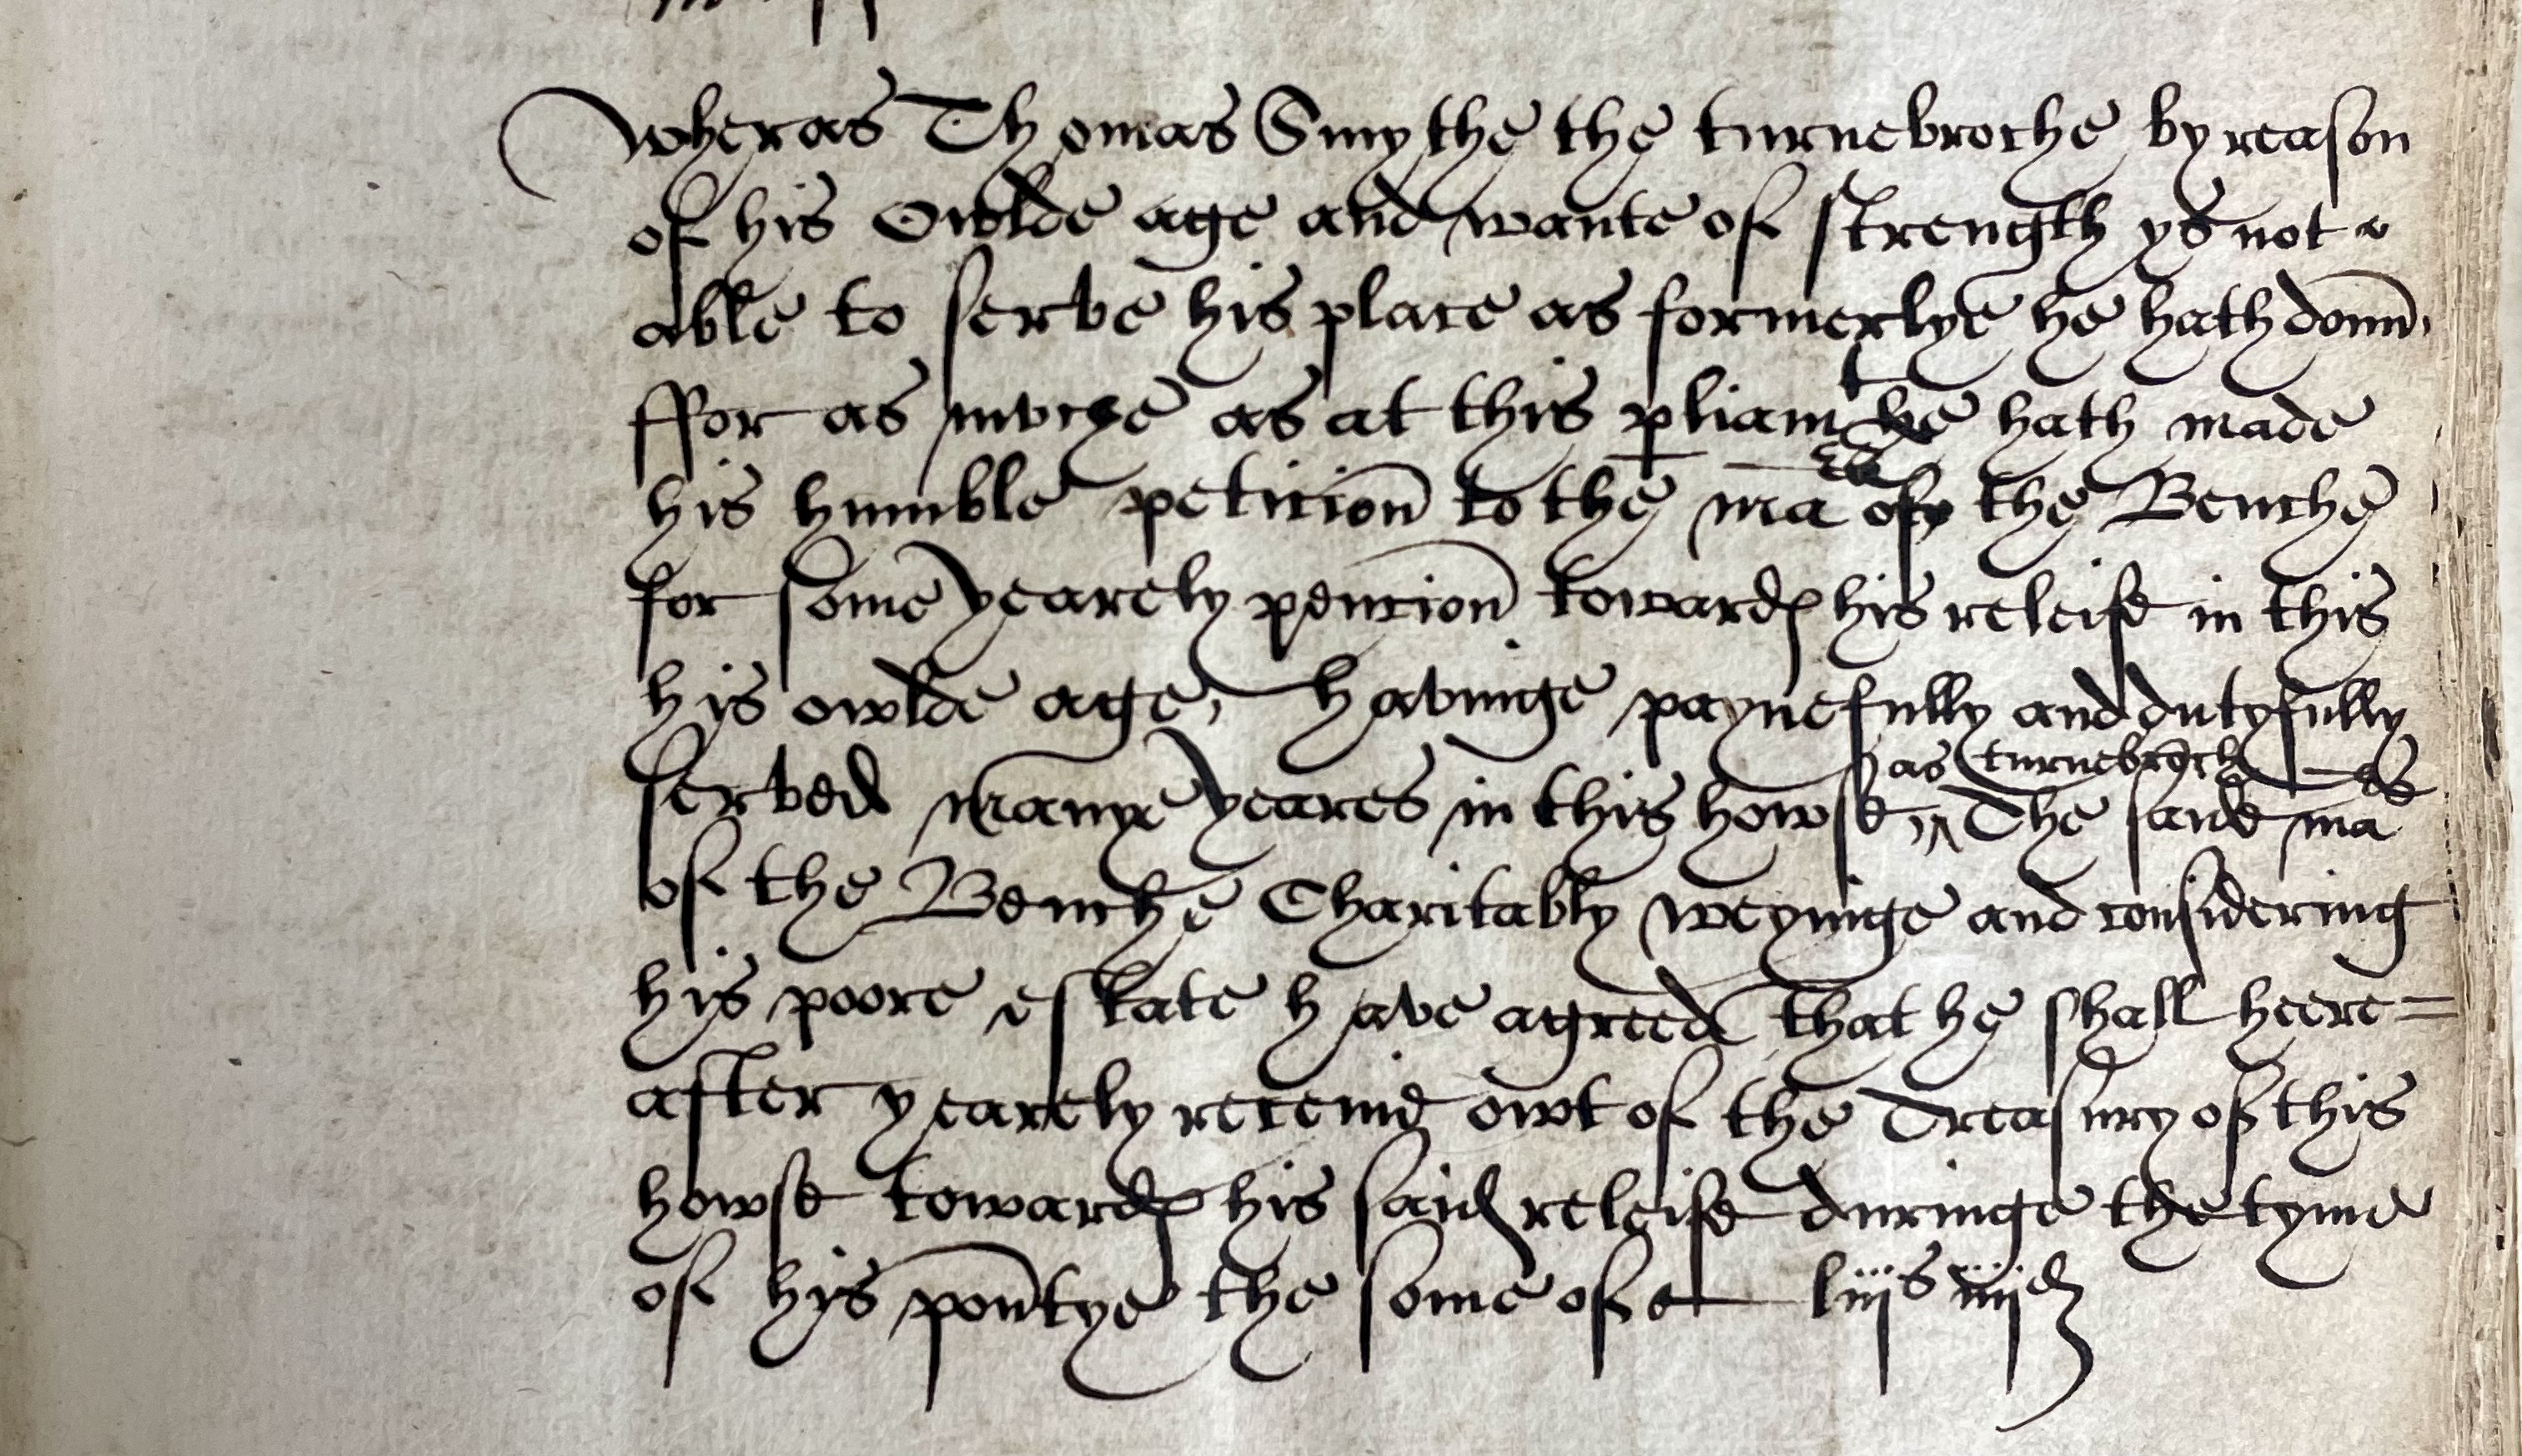 Wheras Thomas Smythe the turnebroche by reason
of his Owlde age and wante of strength ys not
able to serve his place as formerlye he hath donn,
ffor as muche as at this pliamt he hath made
his humble peticion to the mars of the Benche
for some yearely pencion towards his releife in this
his owlde age, havinge paynefully and dutyfully
as turnebroch
served manye yeares in this howse, The saide mars
of the Benche Charitably weyinge and considering
his poore estate have agreed that he shall heere=
after yearely receive owt of the Treasury of this
howse towards his said releife duringe the tyme
of his povtye the some of liijs iiijd